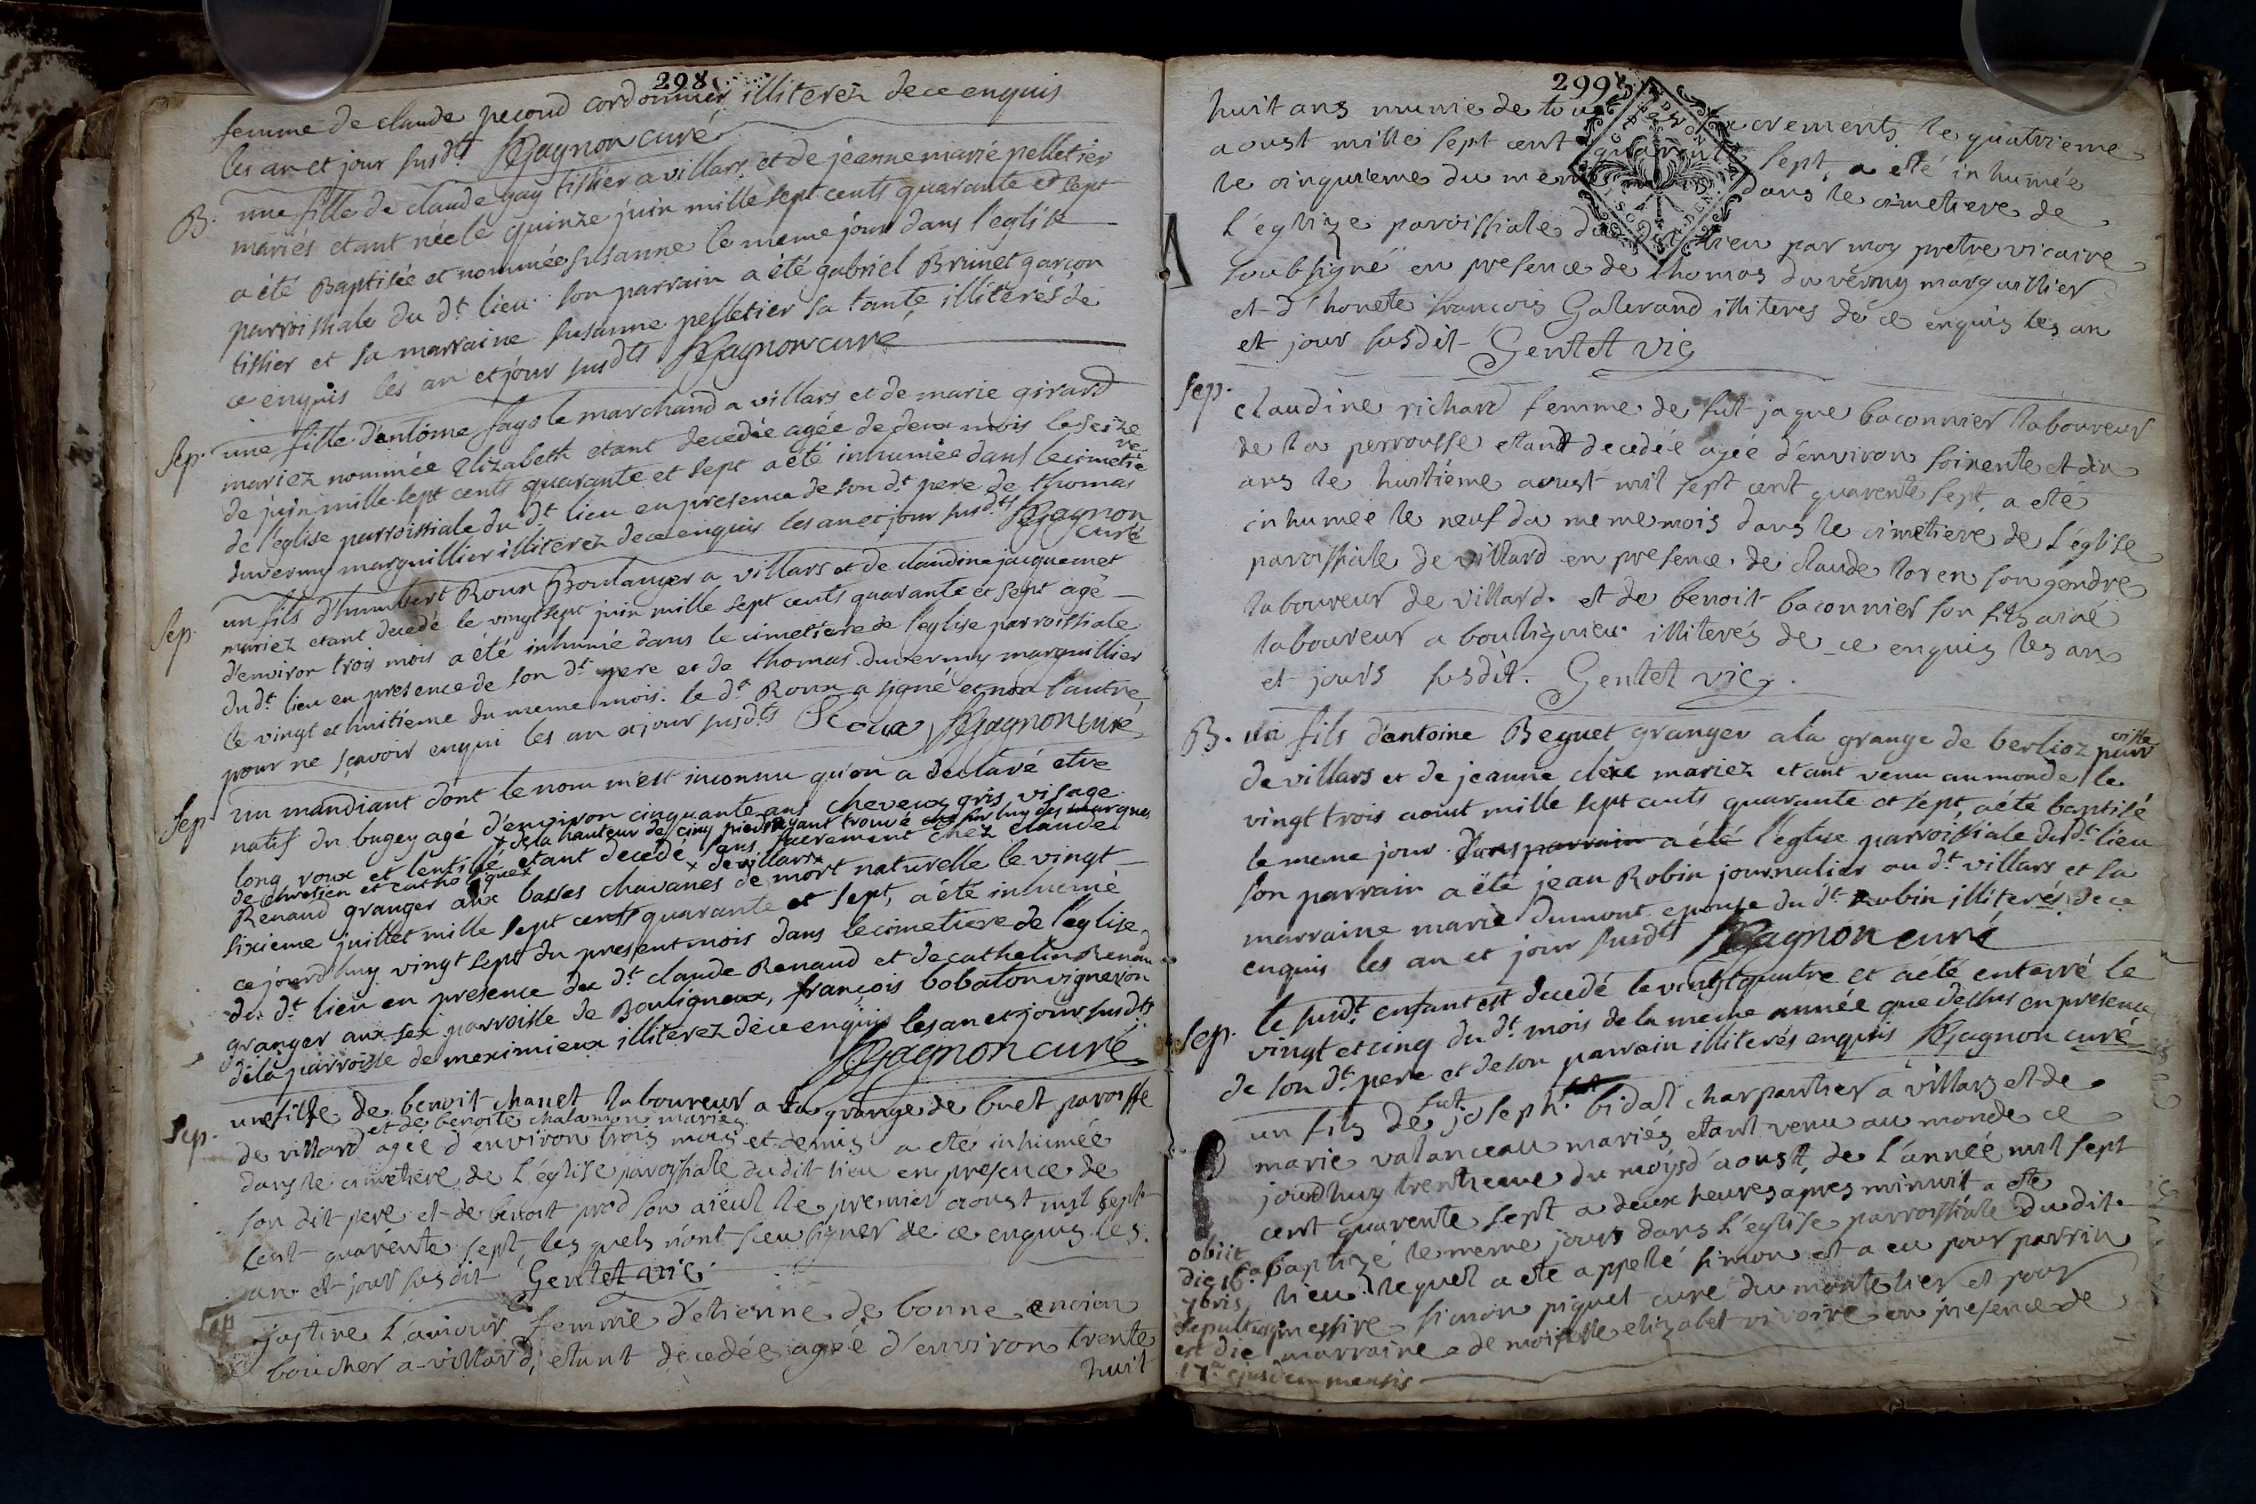 298
femme de claude pecoud cordonnier illiterez dece enquis
les an et jour susdt Gagnon curé
B. une fille de claude gay tissier a villars et de jeanne marie pelletier
mariés etant née le quinze juin mille sept cents quarante et sept
a été Baptisée et nommée susanne le meme jour dans l'eglise
parroissiale du dt lieu son parrain a été gabriel Brunet garçon
tissier et sa marraine susanne pelletier sa tante, illiterés de
ce enquis les an et jour susdts Gagnon curé
sep. une fille d'antoine sage le marchand a villars et de marie girard
mariez nommée Elizabeth etant decedée agée de deux mois le seize
de juin mille sept cents quarante et sept a été inhumée dans le cimetie
re
de l'eglise parroissiale du dt lieu en presence de son dt pere de thomas
duverny marguillier illiterez dece enquis les an et jour susdts Gagnon
curé
sep. un fils d'humbert Roux Boulanger a villars et de claudine jacquemet
mariez etant decedé le vingt sept juin mille sept cents quarante et sept agé
d'environ trois mois a été inhumé dans le cimetiere de l'eglise parroissiale
du dt lieu en presence de son dt pere et de thomas duverny marguillier
le vingt et huitiéme du meme mois. le dt Roux a signé et non l'autre
pour ne sçavoir enqui les an et jour susdts Roux Gagnon curé
sep un mandiant dont le nom m'est inconnu qu'on a declaré etre
natif du bugey agé d'environ cinquante ans cheveux gris visage
x de la hauteur de cinq pieds ayant trouvé sur luy des marques
long roux et lentillé etant decedé sans sacrement chez claude
de chretien et catholique x x de villars x
Renaud granger aux basses chavanes de mort naturelle le vingt
sixieme juillet mille sept cents quarante et sept, a été inhumé
ce jourd'huy vingt sept du present mois dans le cimetiere de l'eglise
du dt lieu en presence du dt claude Renaud et de cathelin Renau
granger aux sex parroisse de Bouligneux, françois bobaton vigneron
de la parroisse de meximieux illiterez dece enquis les an et jour susdts
Gagnon curé
sep. une fille de benoit chanel laboureur a la grange de buet paroisse
et de benoite chalamon mariés
de villard agée d'environ trois mois et demis a ete inhumée
dans le cimetiere de L'église paroissiale dudit lieu en presence de
son dit pere et de benoit prod son aïeul le premier aoust mil sept
cent quarente sept, les quels n'ont sceu signer de ce enquis les
an et jour susdit Gentet vic
sep justine L'amour femme d'etienne de bonne ancien
boucher a villard, etant decedée agée d'environ trente
huit
299
huit ans munie de tous sacrements le quatrieme
aoust mille sept cent quarante sept, a eté inhumée
le cinquieme du meme dans le cimetiere de
L'églize paroissiale dudit lieu par moy pretre vicaire
soubsigné en presence de thomas du verny marguillier
et d'honete francois Galerand illiteres de ce enquis les an
et jour susdit Gentet vic
sep. claudine richard femme de fut jaque baconnier laboureur
de la perrousse etant decedée agée d'environ soixente et dix
ans le huitiéme aoust mil sept cent quarente sept, a eté
inhumée le neuf du meme mois dans le cimetiere de L'église
paroissiale de villard en presence de claude loren son gendre
laboureur de villard. et de benoit baconnier son fils ainé
laboureur a boulignieu illiterés de ce enquis les an
et jours susdit. Gentet vic.
B. un fils d'antoine Beguet granger a la grange de berlioz
de villars et de jeanne clere mariez etant venu au monde le
vingt trois aout mille sept cents quarante et sept, a été baptisé
le meme jour dans parrain a été l'eglise parroissiale du dt lieu
son parrain a été jean Robin journalier au dt villars et sa
marraine marie dumont epouse du dt Robin illiterés de ce
enquis les an et jour susdts Gagnon curé
sep. le susdt enfant est decedé le vingt quatre et a été enterré le
vingt et cinq du dt mois de la meme année que dessus en presence
de son dt pere et de son parrain illiterés enquis Gagnon curé
B un fils de fut joseph bidal charpantier a villars et de
marie valanceau mariés etant venu au monde ce
jourdhuy trentieme du moys d'aoust de L'année mil sept
cent quarente sept a deux heures apres minuit a ete
baptizé le meme jours dans L'eglise parroissiale du dit
lieu lequel a ete appellé simon et a eu pour parrin
messire simon piquet curé du montelier et pour
marraine demoiselle elizabet vivoire en presence de
obiit
die 16a
7bris
sepultus
est die
17a ejusdem mensis